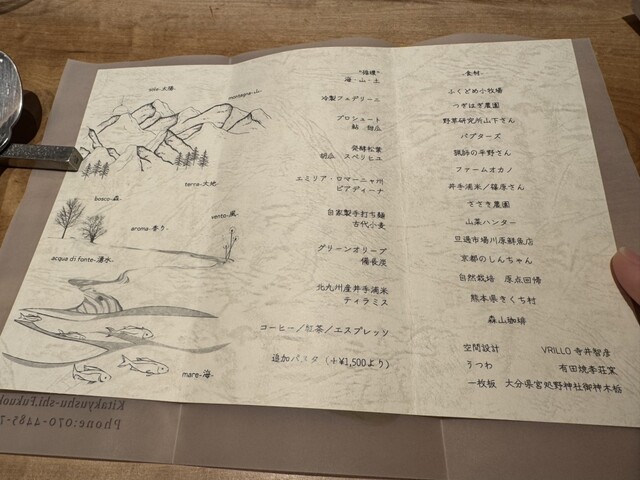 sole-太陽-
montagna-山-
terra-大地-
bosco-森-
vento-風-
aroma-香り-
acqua di fonte-湧水-
mare-海-
"循環"
海・山・土
冷製フェデリーニ
プロシュート
鮎 甜瓜
発酵松葉
胡瓜 スベリヒユ
エミリア・ロマーニャ州
ピアディーナ
自家製手打ち麺
古代小麦
グリーンオリーブ
備長炭
北九州産井手浦米
ティラミス
コーヒー/紅茶/エスプレッソ
追加パスタ (+¥1,500より)
-食材-
ふくどめ小牧場
つぎはぎ農園
野草研究所山下さん
バブターズ
猟師の平野さん
ファームオカノ
井手浦米/篠原さん
ささき農園
山菜ハンター
旦過市場川原鮮魚店
京都のしんちゃん
自然栽培 原点回帰
熊本県きくち村
森山珈琲
空間設計 VRILLO 寺井智彦
うつわ 有田焼李荘窯
一枚板 大分県宮処野神社御神木栃
Kitakyushu-shi,Fukuok
Phone:070-4485-7